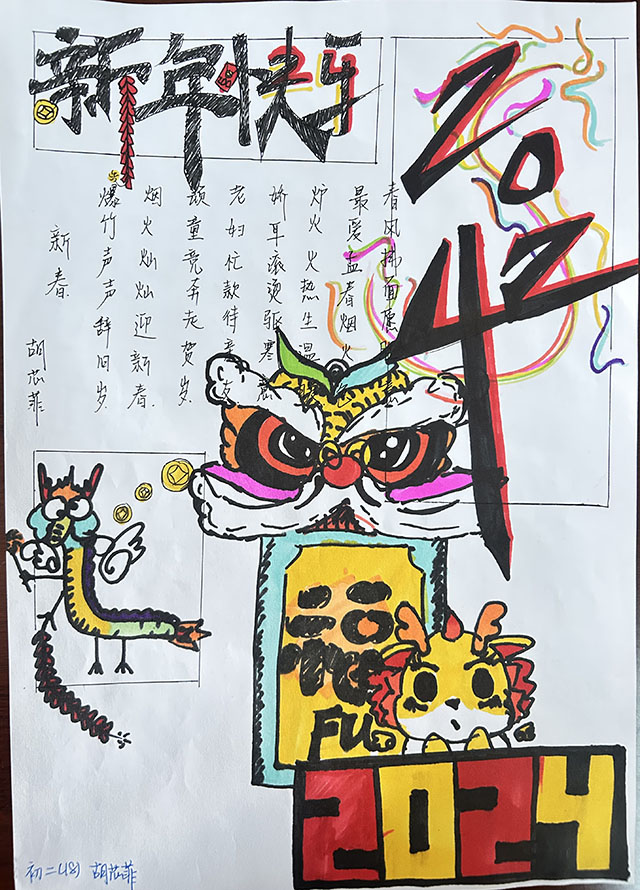 新年快乐
2024
新春
胡芯菲
爆竹声声辞旧岁.
烟火灿灿迎新春.
顽童竞弃走贺岁.
老妇忙款待亲友
娇耳滚烫驱寒
炉火火热生温暖
最爱孟春烟火
春风拂面
福
FU
2024
初二(18) 胡芯菲